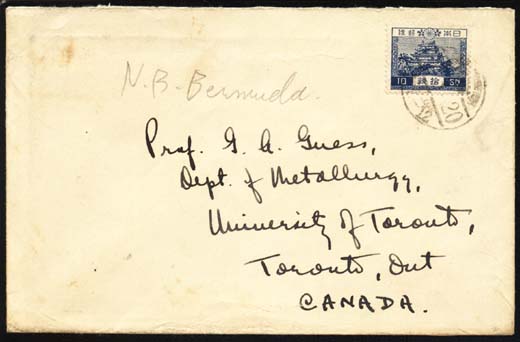 日本郵便
10 拾銭 Sn
20
N.B. Bermuda.
Prof. G. A. Guess,
Dept. of Metallurgy,
University of Toronto,
Toronto, Ont
CANADA.